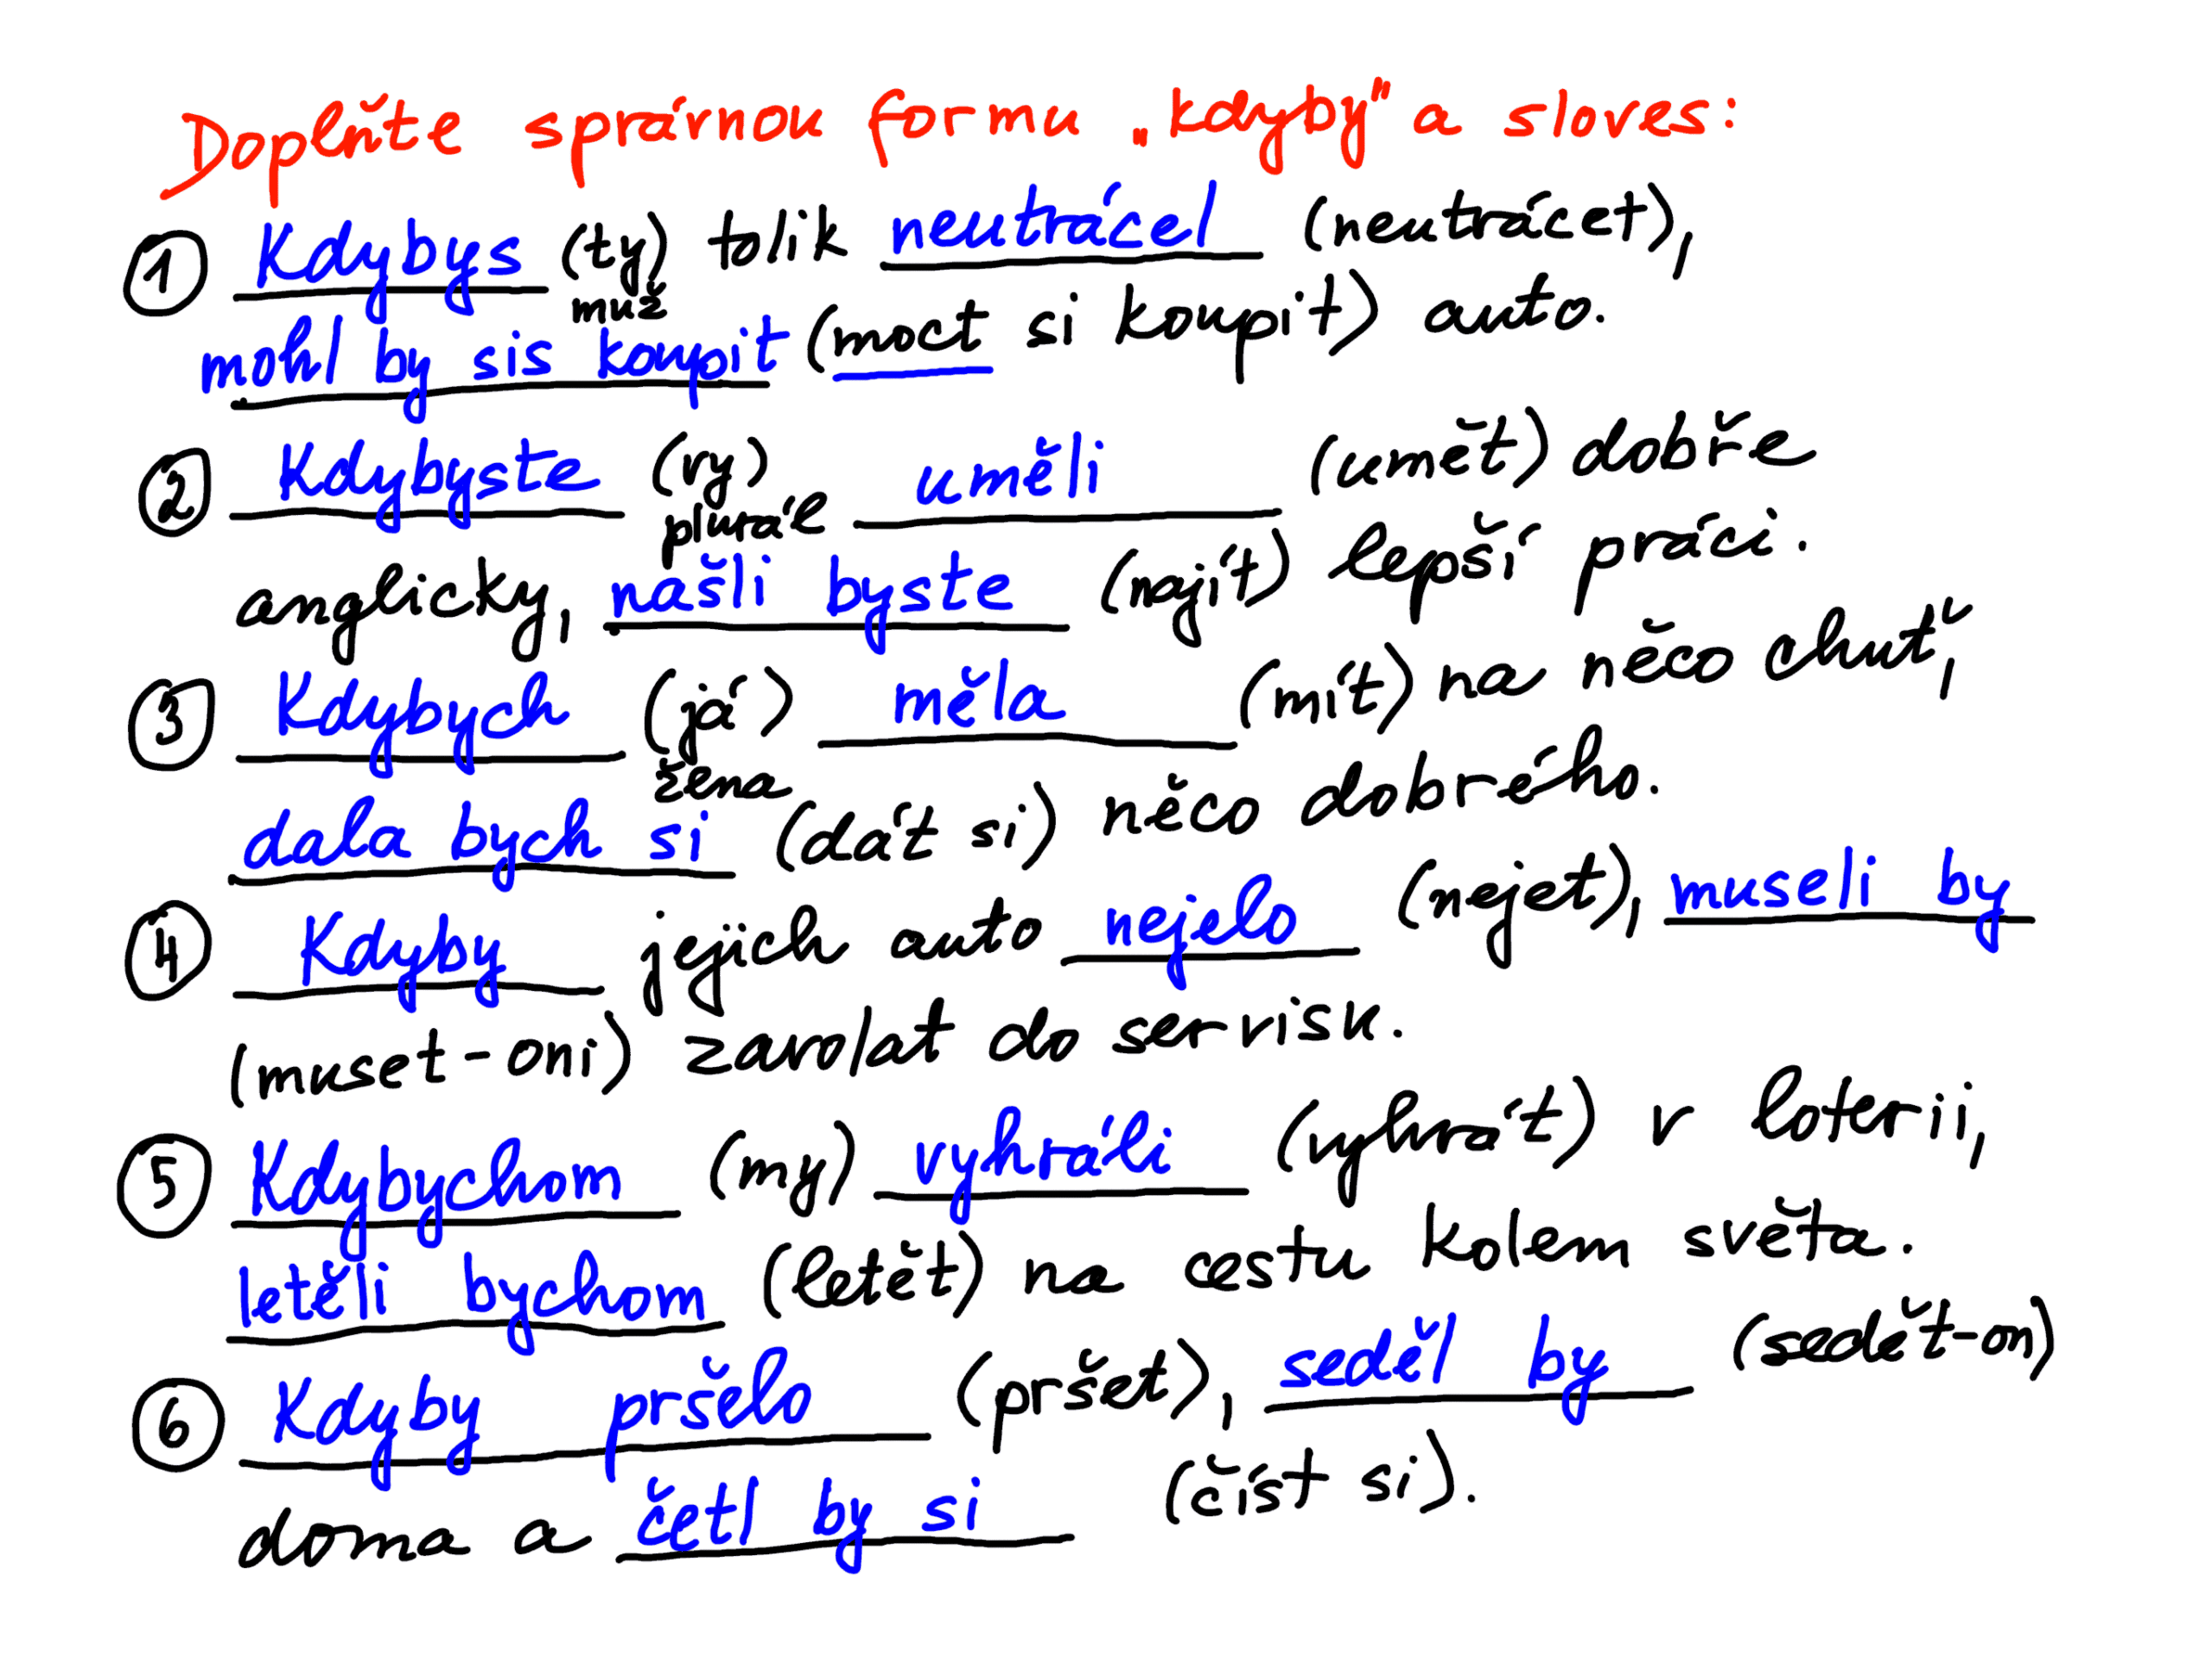 Doplňte správnou formu „kdyby" a sloves:
① Kdybys (ty) tolik neutrácel (neutrácet),
muž
mohl by sis koupit (moct si koupit) auto.
② Kdybyste (vy) uměli (umět) dobře
plurál
anglicky, našli byste (najít) lepší práci.
③ Kdybych (já) měla (mít) na něco chuť,
žena
dala bych si (dát si) něco dobrého.
④ Kdyby jejich auto nejelo (nejet), museli by
(muset-oni) zavolat do servisu.
⑤ Kdybychom (my) vyhráli (vyhrát) v loterii,
letěli bychom (letět) na cestu kolem světa.
⑥ Kdyby pršelo (pršet), seděl by (sedět-on)
doma a četl by si (číst si).